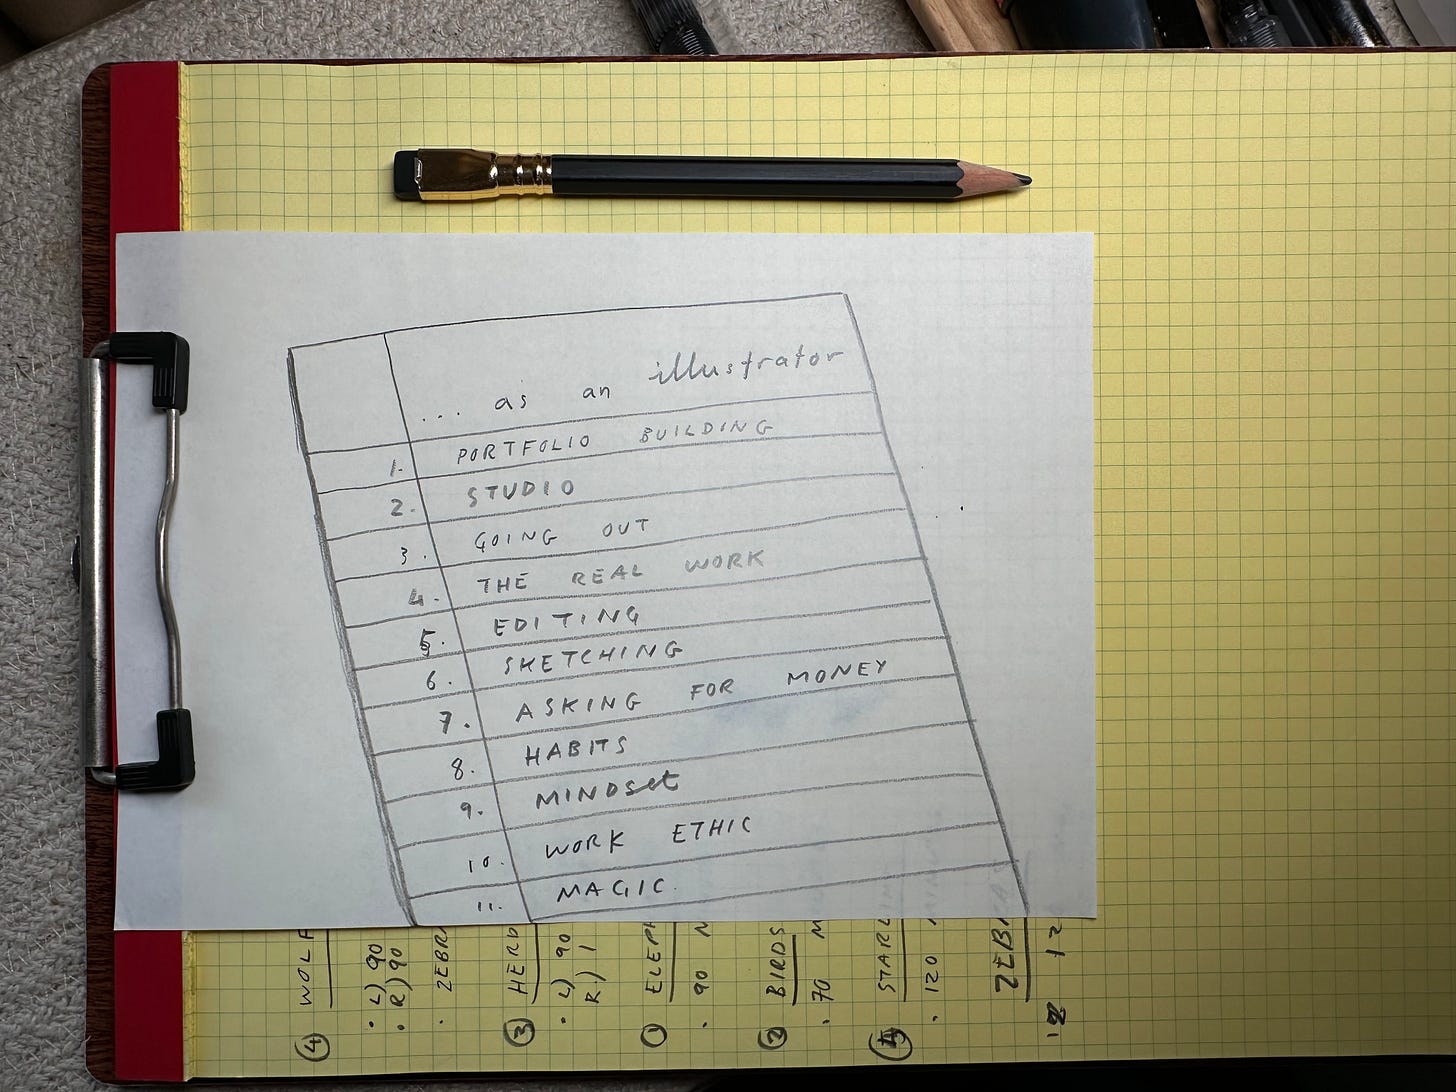 ... as an illustrator
1. PORTFOLIO BUILDING
2. STUDIO
3. GOING OUT
4. THE REAL WORK
5. EDITING
6. SKETCHING
7. ASKING FOR MONEY
8. HABITS
9. MINDset
10. WORK ETHIC
11. MAGIC.
4 WOLF
• L) 90
• R) 90
• ZEBR
3 HERD
• L) 90
R) 1
1 ELEPH
• 90
2 BIRDS
• 70 M
STARL
• 120
ZEBRA
12